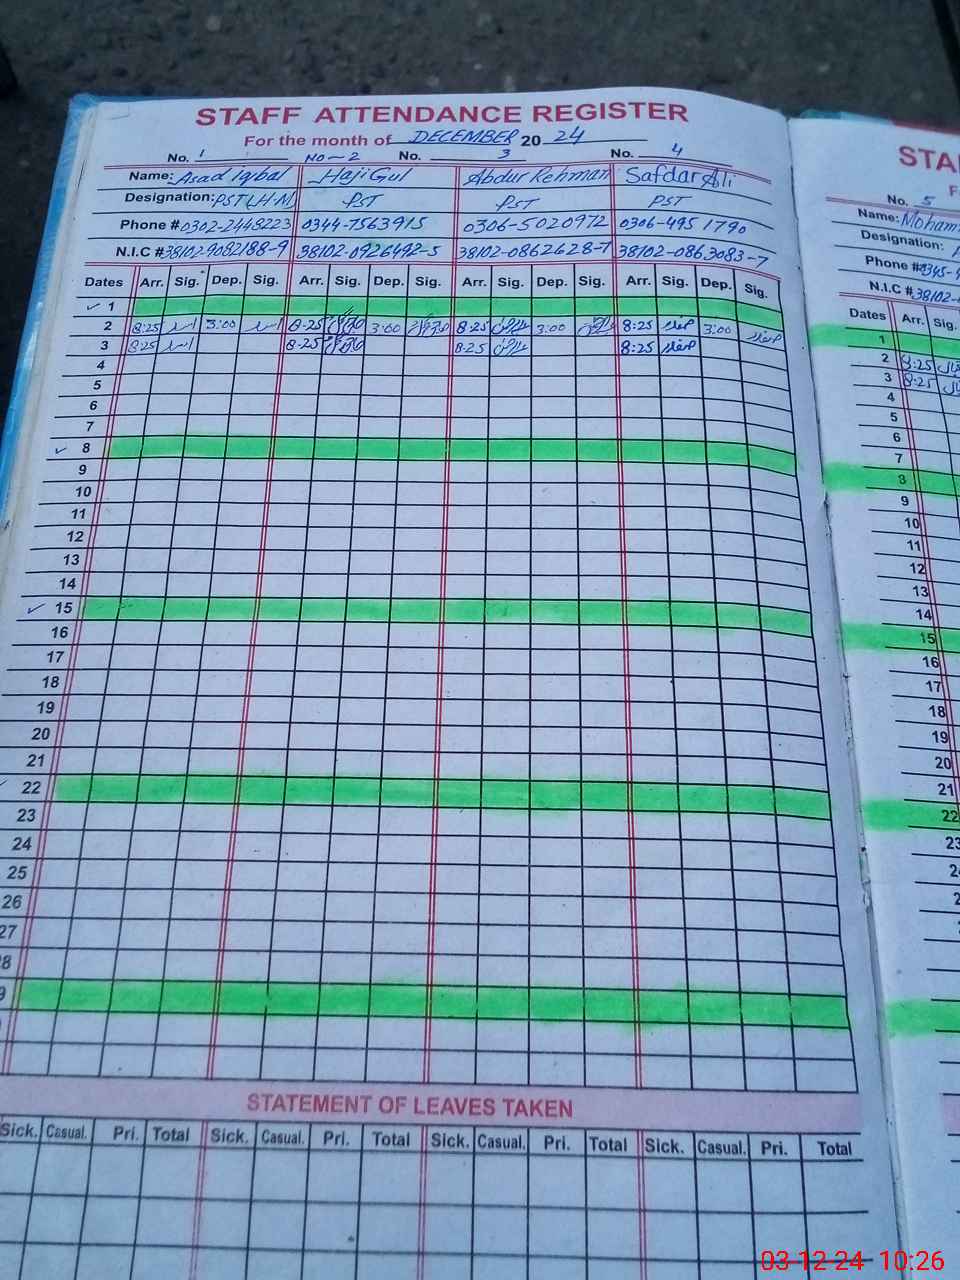 STAFF ATTENDANCE REGISTER
For the month of DECEMBER 20 24
No. 1 No-2 No. 3 No. 4
Name: Asad Iqbal Haji Gul Abdur Rehman Safdar Ali
Designation: PST(H.M) PST PST PST
Phone # 0302-2448223 0344-7563915 0306-5020972 0306-495 1790
N.I.C # 38102-9082188-9 38102-0926492-5 38102-0862628-7 38102-0863083-7
Dates Arr. Sig. Dep. Sig. Arr. Sig. Dep. Sig. Arr. Sig. Dep. Sig. Arr. Sig. Dep. Sig.
1
2 8:25 اسد 3:00 اسد 8-25 3:00 8-25 3:00 8:25 صفدر 3:00 صفدر
3 8-25 اسد 8-25 8-25 8:25 صفدر
4
5
6
7
8
9
10
11
12
13
14
15
16
17
18
19
20
21
22
23
24
25
26
27
8
9
STATEMENT OF LEAVES TAKEN
Sick. Casual. Pri. Total Sick. Casual. Pri. Total Sick. Casual. Pri. Total Sick. Casual. Pri. Total
STA
No. 5
Name: Moham
Designation:
Phone # 0345-4
N.I.C # 38102-
Dates Arr. Sig.
1
2 8:25
3 8-25
4
5
6
7
8
9
10
11
12
13
14
15
16
17
18
19
20
21
22
23
2
2
03-12-24 10:26